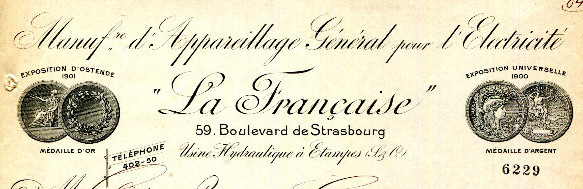 Manuf.re d'Appareillage Général pour l'Electricité
EXPOSITION D'OSTENDE
1901
MÉDAILLE D'OR
"La Française"
59. Boulevard de Strasbourg
Usine Hydraulique à Etampes (S.& O.)
TÉLÉPHONE
402-50
EXPOSITION UNIVERSELLE
1900
MÉDAILLE D'ARGENT
6229